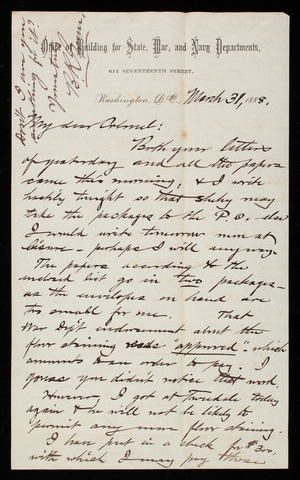 Office of Building for State, War, and Navy Departments,
612 SEVENTEENTH STREET,
Washington, D.C., March 31, 1888.
My dear Colonel:
Both your letters
of yesterday and all the papers
came this morning; & I write
hastily tonight so that may
take the packages to the P.O. else
I would write tomorrow more at
leisure - perhaps I will anyway.
The papers according to the
enclosed list go in two packages -
as the envelopes on hand are
too small for me. That
War Dep't endorsement about the
floor staining reads "approved" - which
amounts to an order to pay. I
guess you didn't notice that word.
However, I got at today
again & he will not be likely to
permit any more floor staining.
I have put in a check for $300,
with which I may pay those
Don't I owe you
something for it?